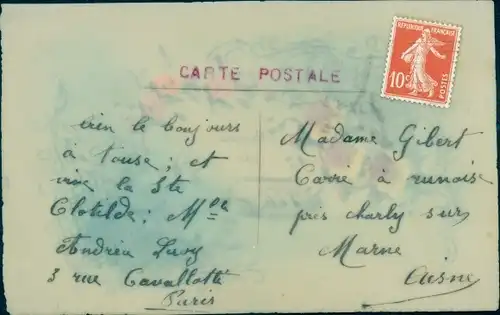 CARTE POSTALE
REPUBLIQUE FRANÇAISE
10c
POSTES
bien le boujours
à touse; et
vive la Ste
Clotilde: Melle
Andréa
3 rue Cavallotti
Paris
Madame Gibert
Carré à
près charly sur
Marne
Aisne